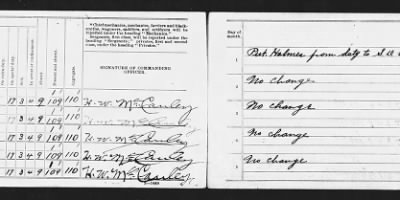 "Chief mechanics, mechanics, farriers and black-
smiths, wagoners, saddlers, and artificers will be
reported under the heading "Mechanics."
Sergeants, first class, will be reported under the
heading "Sergeants;" privates, first and second
class, under the heading "Privates."
SIGNATURE OF COMMANDING
OFFICER.
Aggregate.
17 3 4 9 109 110 H. W. McCauley
17 3 4 9 109 110 H. W. McCauley
17 3 4 9 109 110 H. W. McCauley
17 3 4 9 109 110 H. W. McCauley
17 3 4 9 109 110 H. W. McCauley
Day of
month.
1 Holmes from duty to
2 No change
3 No change
4 No change
5 No change